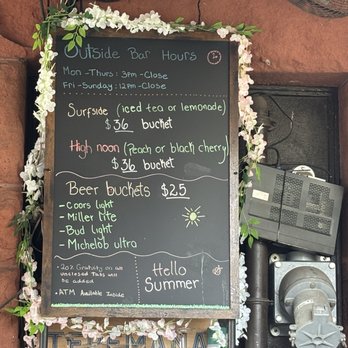 Outside Bar Hours
Mon-Thurs: 3pm-Close
Fri-Sunday: 12pm-Close
Surfside (iced tea or lemonade)
$36 bucket
High noon (Peach or black cherry)
$36 bucket
Beer buckets $25
- Coors light
- Miller lite
- Bud light
- Michelob ultra
- 20% Gratuity on all
unclosed Tabs will
be added
ATM Available Inside
Hello
Summer